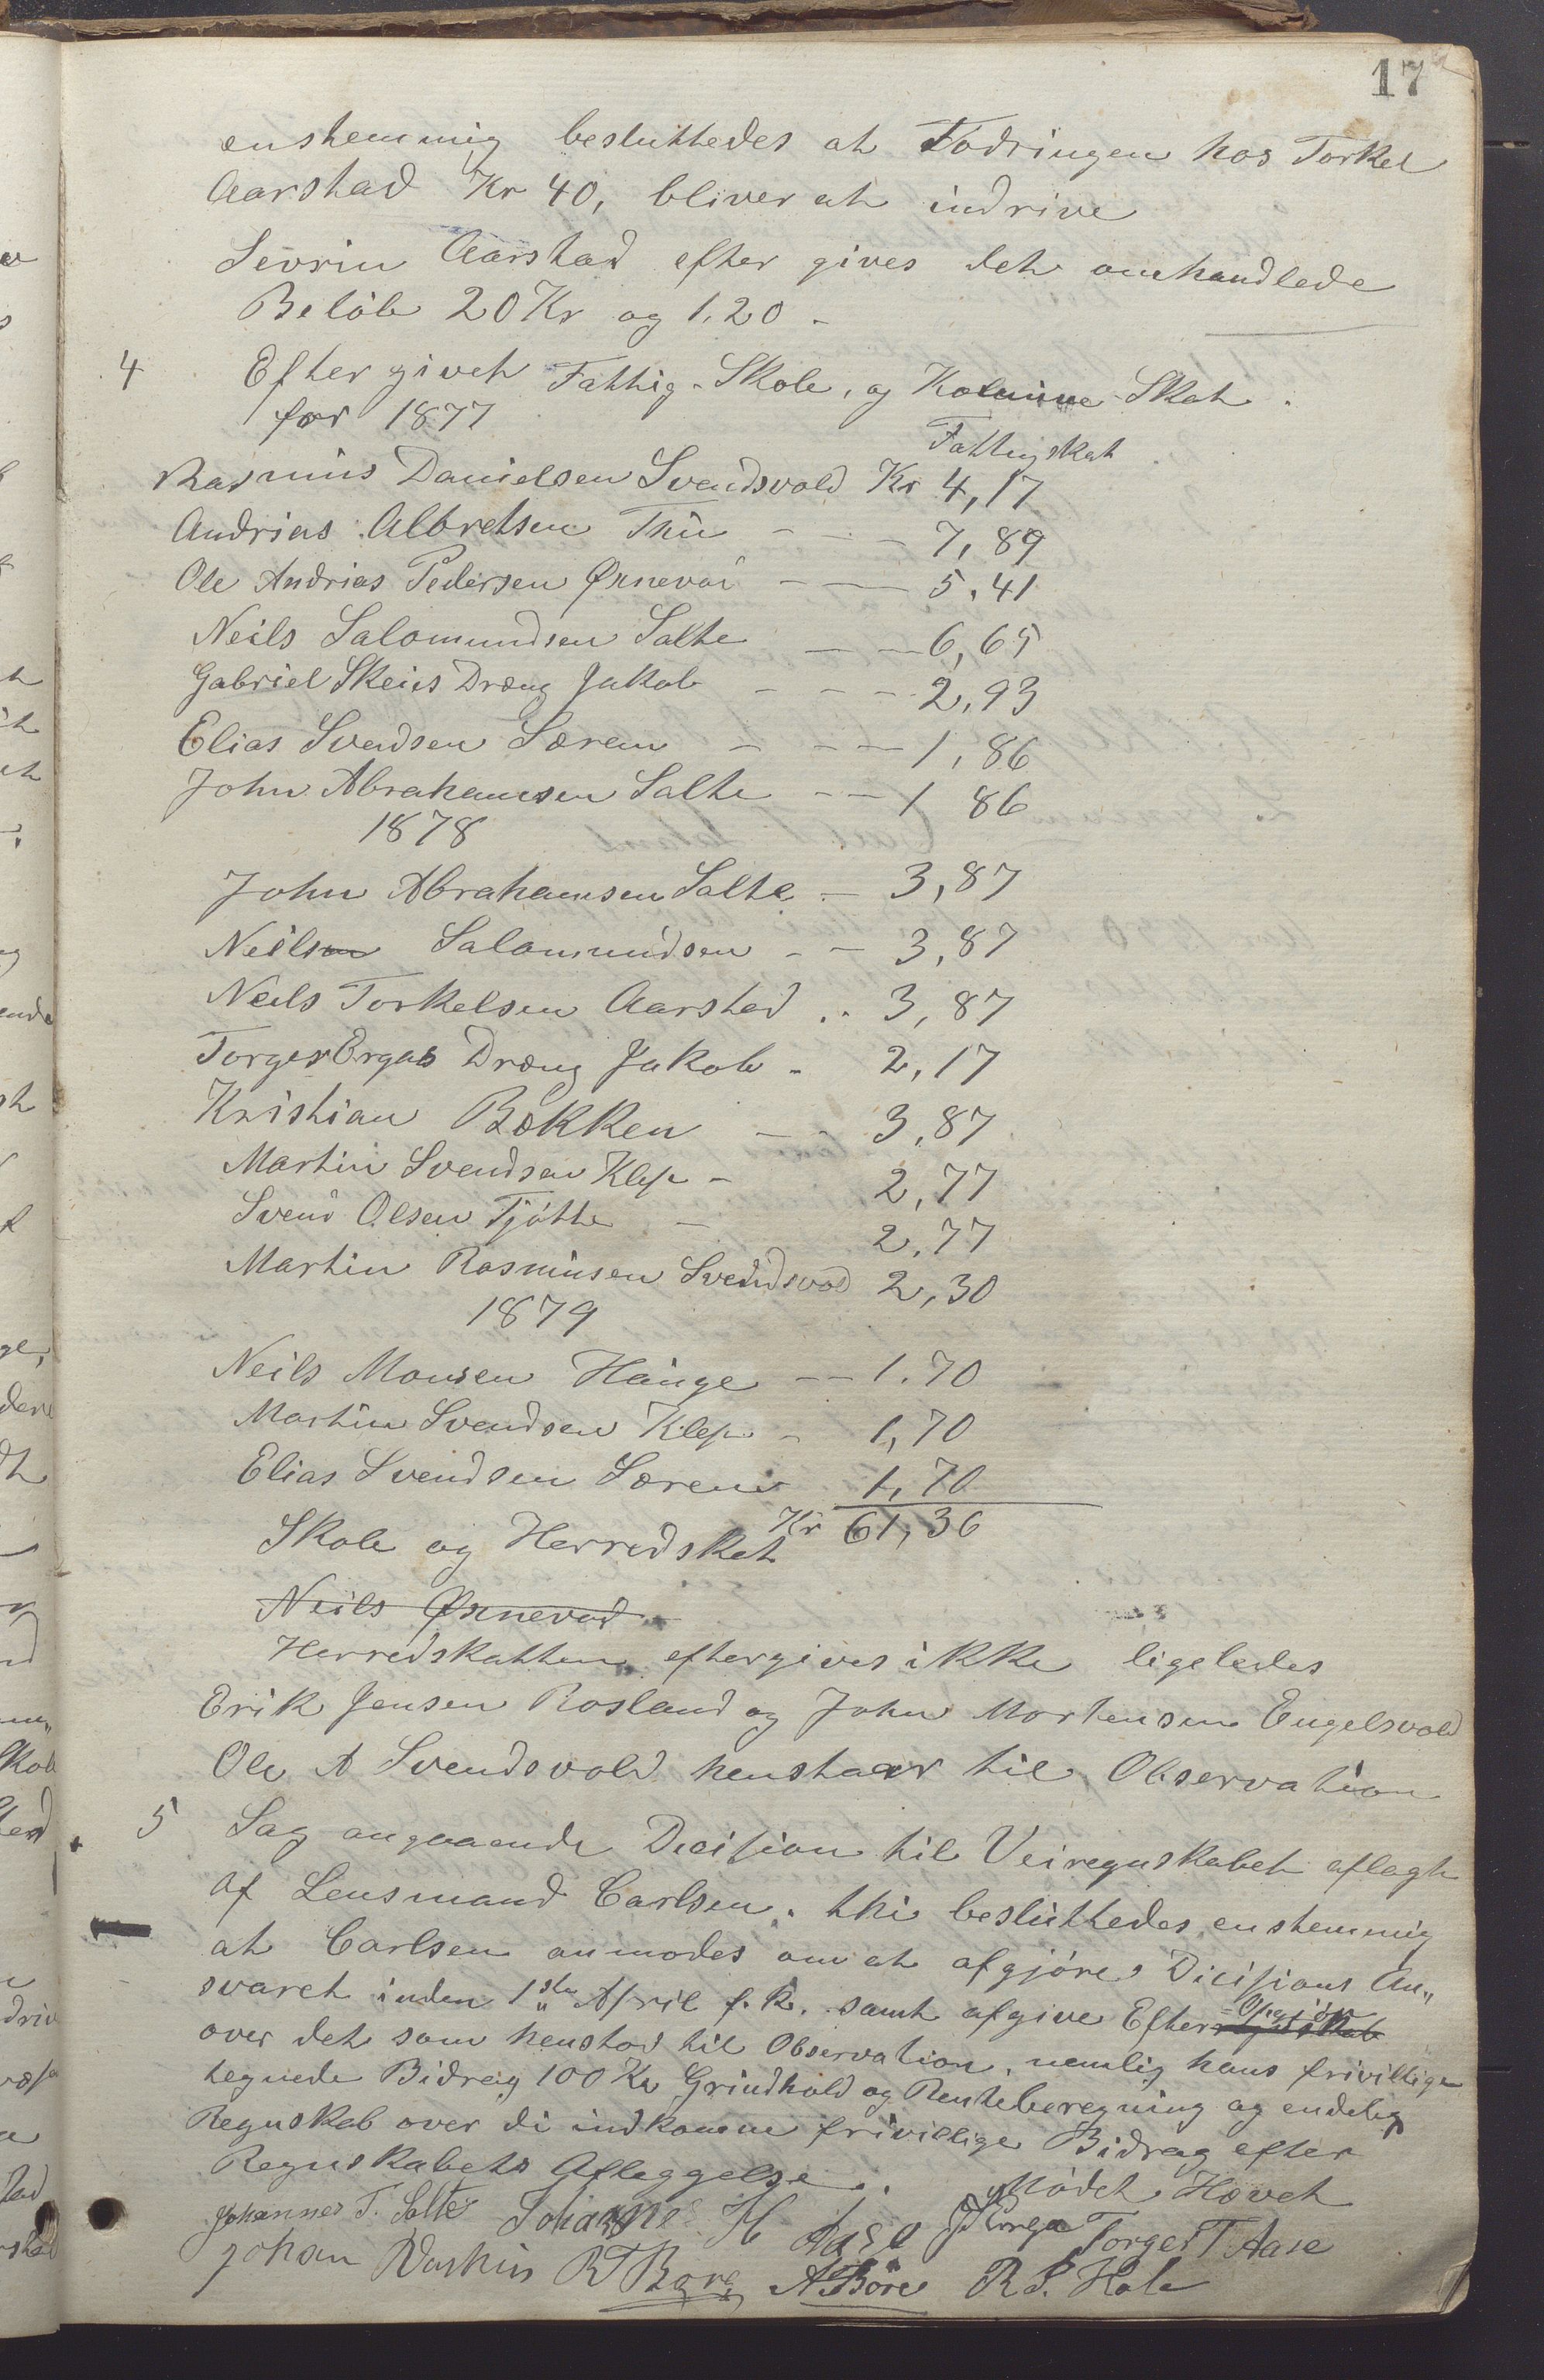 17
enstemmig besluttedes at Fodringen hos Torkel
Aarstad Kr 40, bliver at indrive
Sevrin Aarstad efter gives det omhandlede
Beløb 20 Kr og 1.20 -
4 Efter givet Fattig-Skole, og Komune Skat.
for 1877
Fattigskat
Rasmus Danielsen Svendsvold Kr 4,17
Andrias Albretsen Thu - - - 7,89
Ole Andrias Pedersen Ønnevad - - 5,41
Neils Salomundsen Salte - - 6,65
Gabriel Skeies Dræng Jakob - - - 2,93
Elias Svendsen Særem - - - 1,86
John Abrahamsen Salte - - 1 86
1878
John Abrahamsen Salte - 3,87
Neilsen Salomundsen - - 3,87
Neils Torkelsen Aarsted .. 3,87
Torger Ergas Dræng Jakob - 2,17
Kristian Bækken - - 3,87
Martin Svendsen Klep - 2,77
Svend Olsen Tjøtte - 2,77
Martin Rasmusen Svendsvod 2,30
1879
Neils Monsen Hauge - - 1.70
Martin Svendsen Klep - 1,70
Elias Svendsen Særem 1,70
Kr 61,36
Skole og Herredskat
Neils Ønnevad -
Herredskatten eftergives ikke ligeledes
Erik Jensen Rosland og John Mortensen Engelsvold
Ole A Svendsvold henstaaer til Observation
5 Sag angaaende Decision til Veiregnskabet aflagt
af Lensmand Carlsen. thi besluttedes enstemmig
at Carlsen anmodes om at afgjøre Dicisions An„
svaret inden 1ste April f. k. samt afgive Efter Opgjør
over det som henstod til Observation, nemlig hans frivillige
tegnede Bidrag 100 Kr Grindhold og Renteberegning og endelig
Regnskab over di indkomne frivillige Bidrag efter
Regnskabets Afleggelse.. Mødet Hævet
Johannes T. Salte Johannes H Aase Torger T Aase
Johan R T Bore A Bore R S. Hole